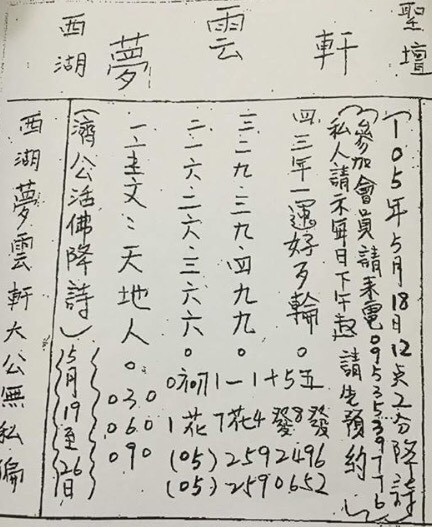 西湖 夢雲軒 聖壇
(105年5月18日12点工分降詩)
(參加會員請來電0953539776)
私人請示每日下午起請先預約
四三年一運好歹輪。
三、二九.三九.四九九。
二、一六.二六.三六六。
一、主文:天地人。
0初1一1十5五
1花7花4發8發
(05)2592496
(05)2590652
030
060
090
(濟公活佛降詩)
5月19至26日
西湖夢雲軒大公無私編